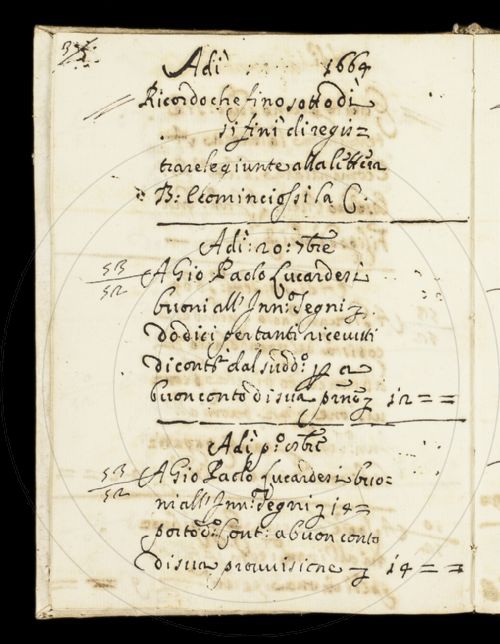 Adì 1664
Ricordo che fino sotto dì
si finì di regis=
trare le giunte alla lettera
B: e cominciossi la C.
Adì: 20: 7bre
53
52
A Gio Paolo Lucardesi
buoni all' Inn: Segni
dodici per tanti ricevuti
di cont: dal sudd:
buon conto di sua 12 = =
Adì p:o 8bre
53
52
A Gio Paolo Lucardesi buo=
ni all' Inn: Segni 14=
port: d: Cont: a buon conto
di sua provvisione 14 = =